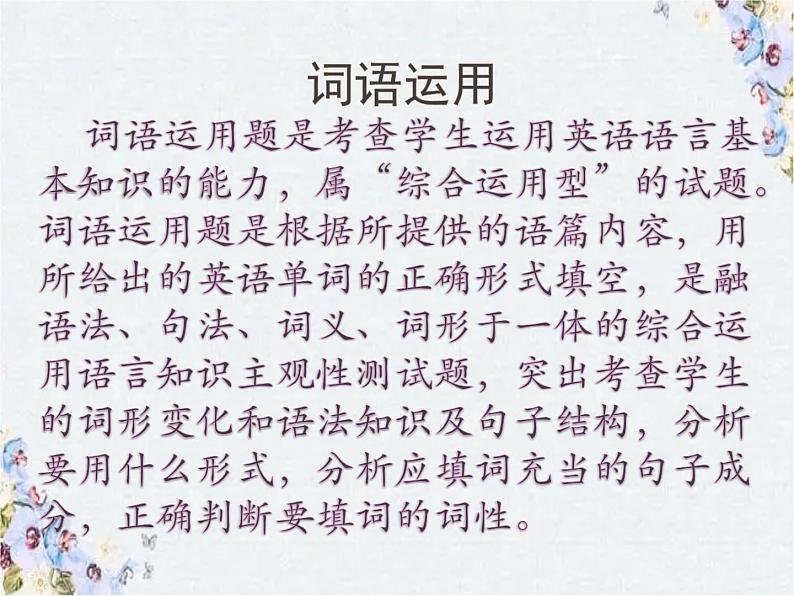 词语运用
词语运用题是考查学生运用英语语言基
本知识的能力，属“综合运用型”的试题。
词语运用题是根据所提供的语篇内容，用
所给出的英语单词的正确形式填空，是融
语法、句法、词义、词形于一体的综合运
用语言知识主观性测试题，突出考查学生
的词形变化和语法知识及句子结构，分析
要用什么形式，分析应填词充当的句子成
分，正确判断要填词的词性。